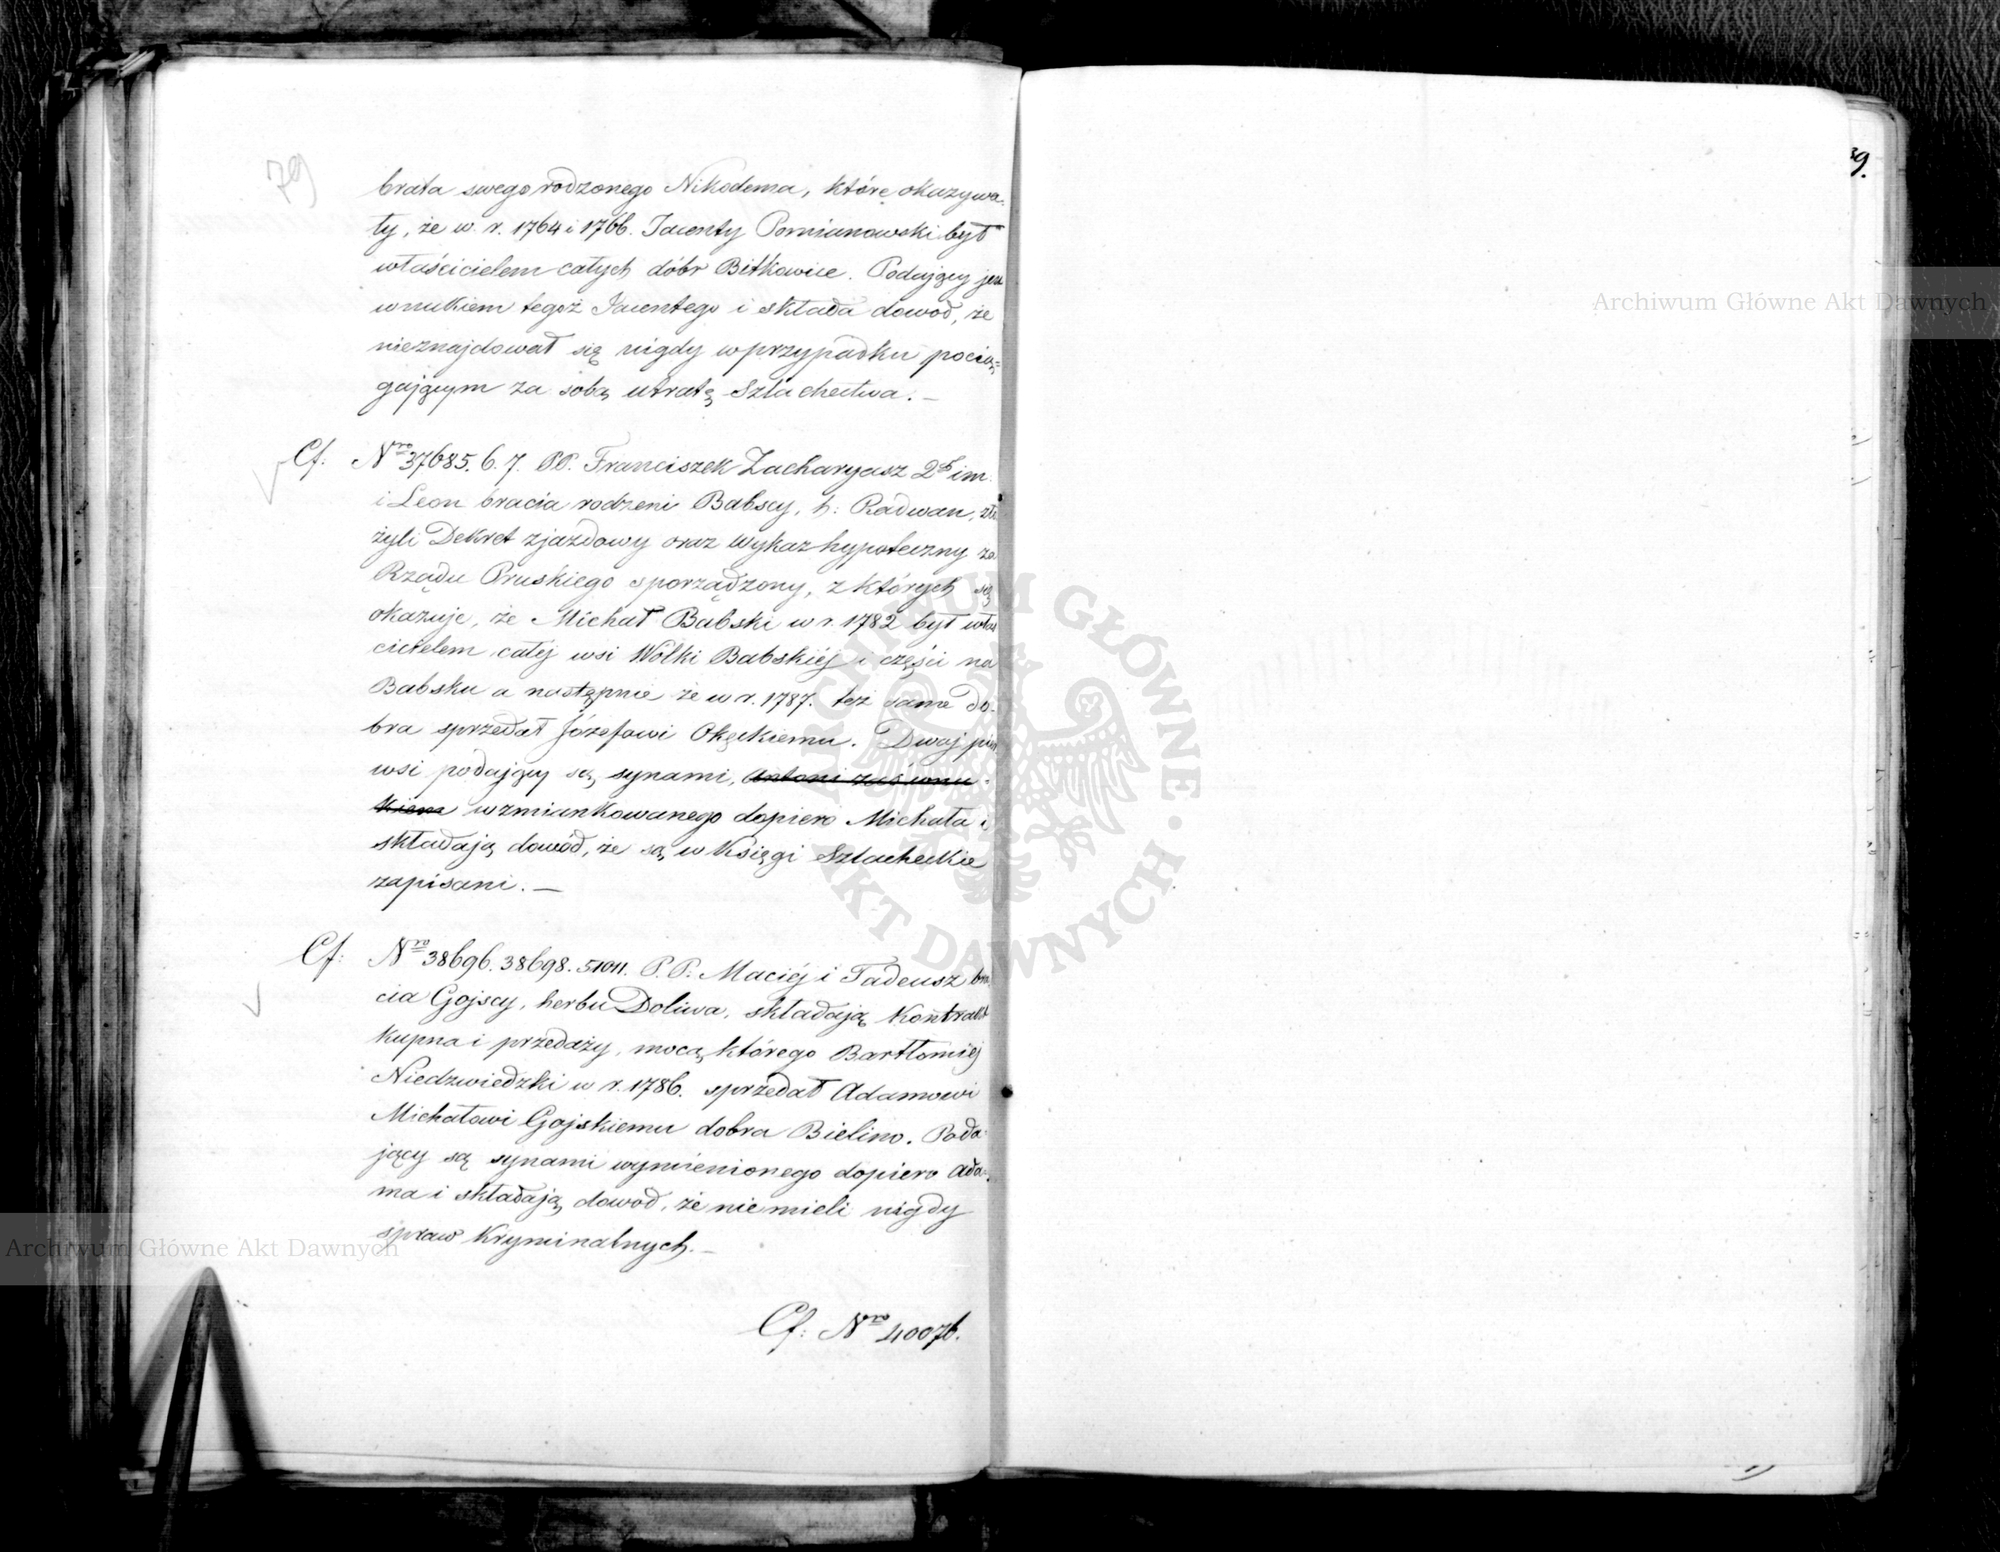 79
brata swego rodzonego Nikodema, które okazywa-
ły, że w r. 1764 i 1766. Jacenty Pomianowski był
właścicielem całych dóbr Bitkowice. Podający jest
wnukiem tegoż Jacentego i składa dowód, że
nieznajdował się nigdy w przypadku pocią=
gającym za sobą utratę Szlachectwa. —
Cf. Nro 37685. 6. 7. PP. Franciszek Zacharyasz 2ch im.
i Leon bracia rodzeni Babscy, h: Radwan, zło
żyli Dekret zjazdowy oraz Wykaz hypoteczny za
Rządu Pruskiego sporządzony, z których się
okazuje, że Michał Babski w r. 1782 był właś
cicielem całej wsi Wólki Babskiéj i części na
Babsku a następnie że w r. 1787. też same do-
bra sprzedał Józefowi Okęckiemu. Dwaj pier
wsi podający są synami, Antoni zaś wnu-
kiem wzmiankowanego dopiero Michała i
składają dowód, że są w Księgi Szlacheckie
zapisani. —
Cf: Nro 38696. 38698. 51011. P.P. Maciéj i Tadeusz bra
cia Gojscy, herbu Doliwa, składają Kontrakt
kupna i przedaży, mocą którego Bartłomiéj
Niedzwiedzki w r. 1786. sprzedał Adamowi
Michałowi Gojskiemu dobra Bielino. Poda-
jący są synami wymienionego dopiero Ada=
ma i składają dowód, że nie mieli nigdy
spraw Kryminalnych. —
Cf: Nro 40076.
39.
Archiwum Główne Akt Dawnych
ARCHIWUM GŁÓWNE AKT DAWNYCH
Archiwum Główne Akt Dawnych